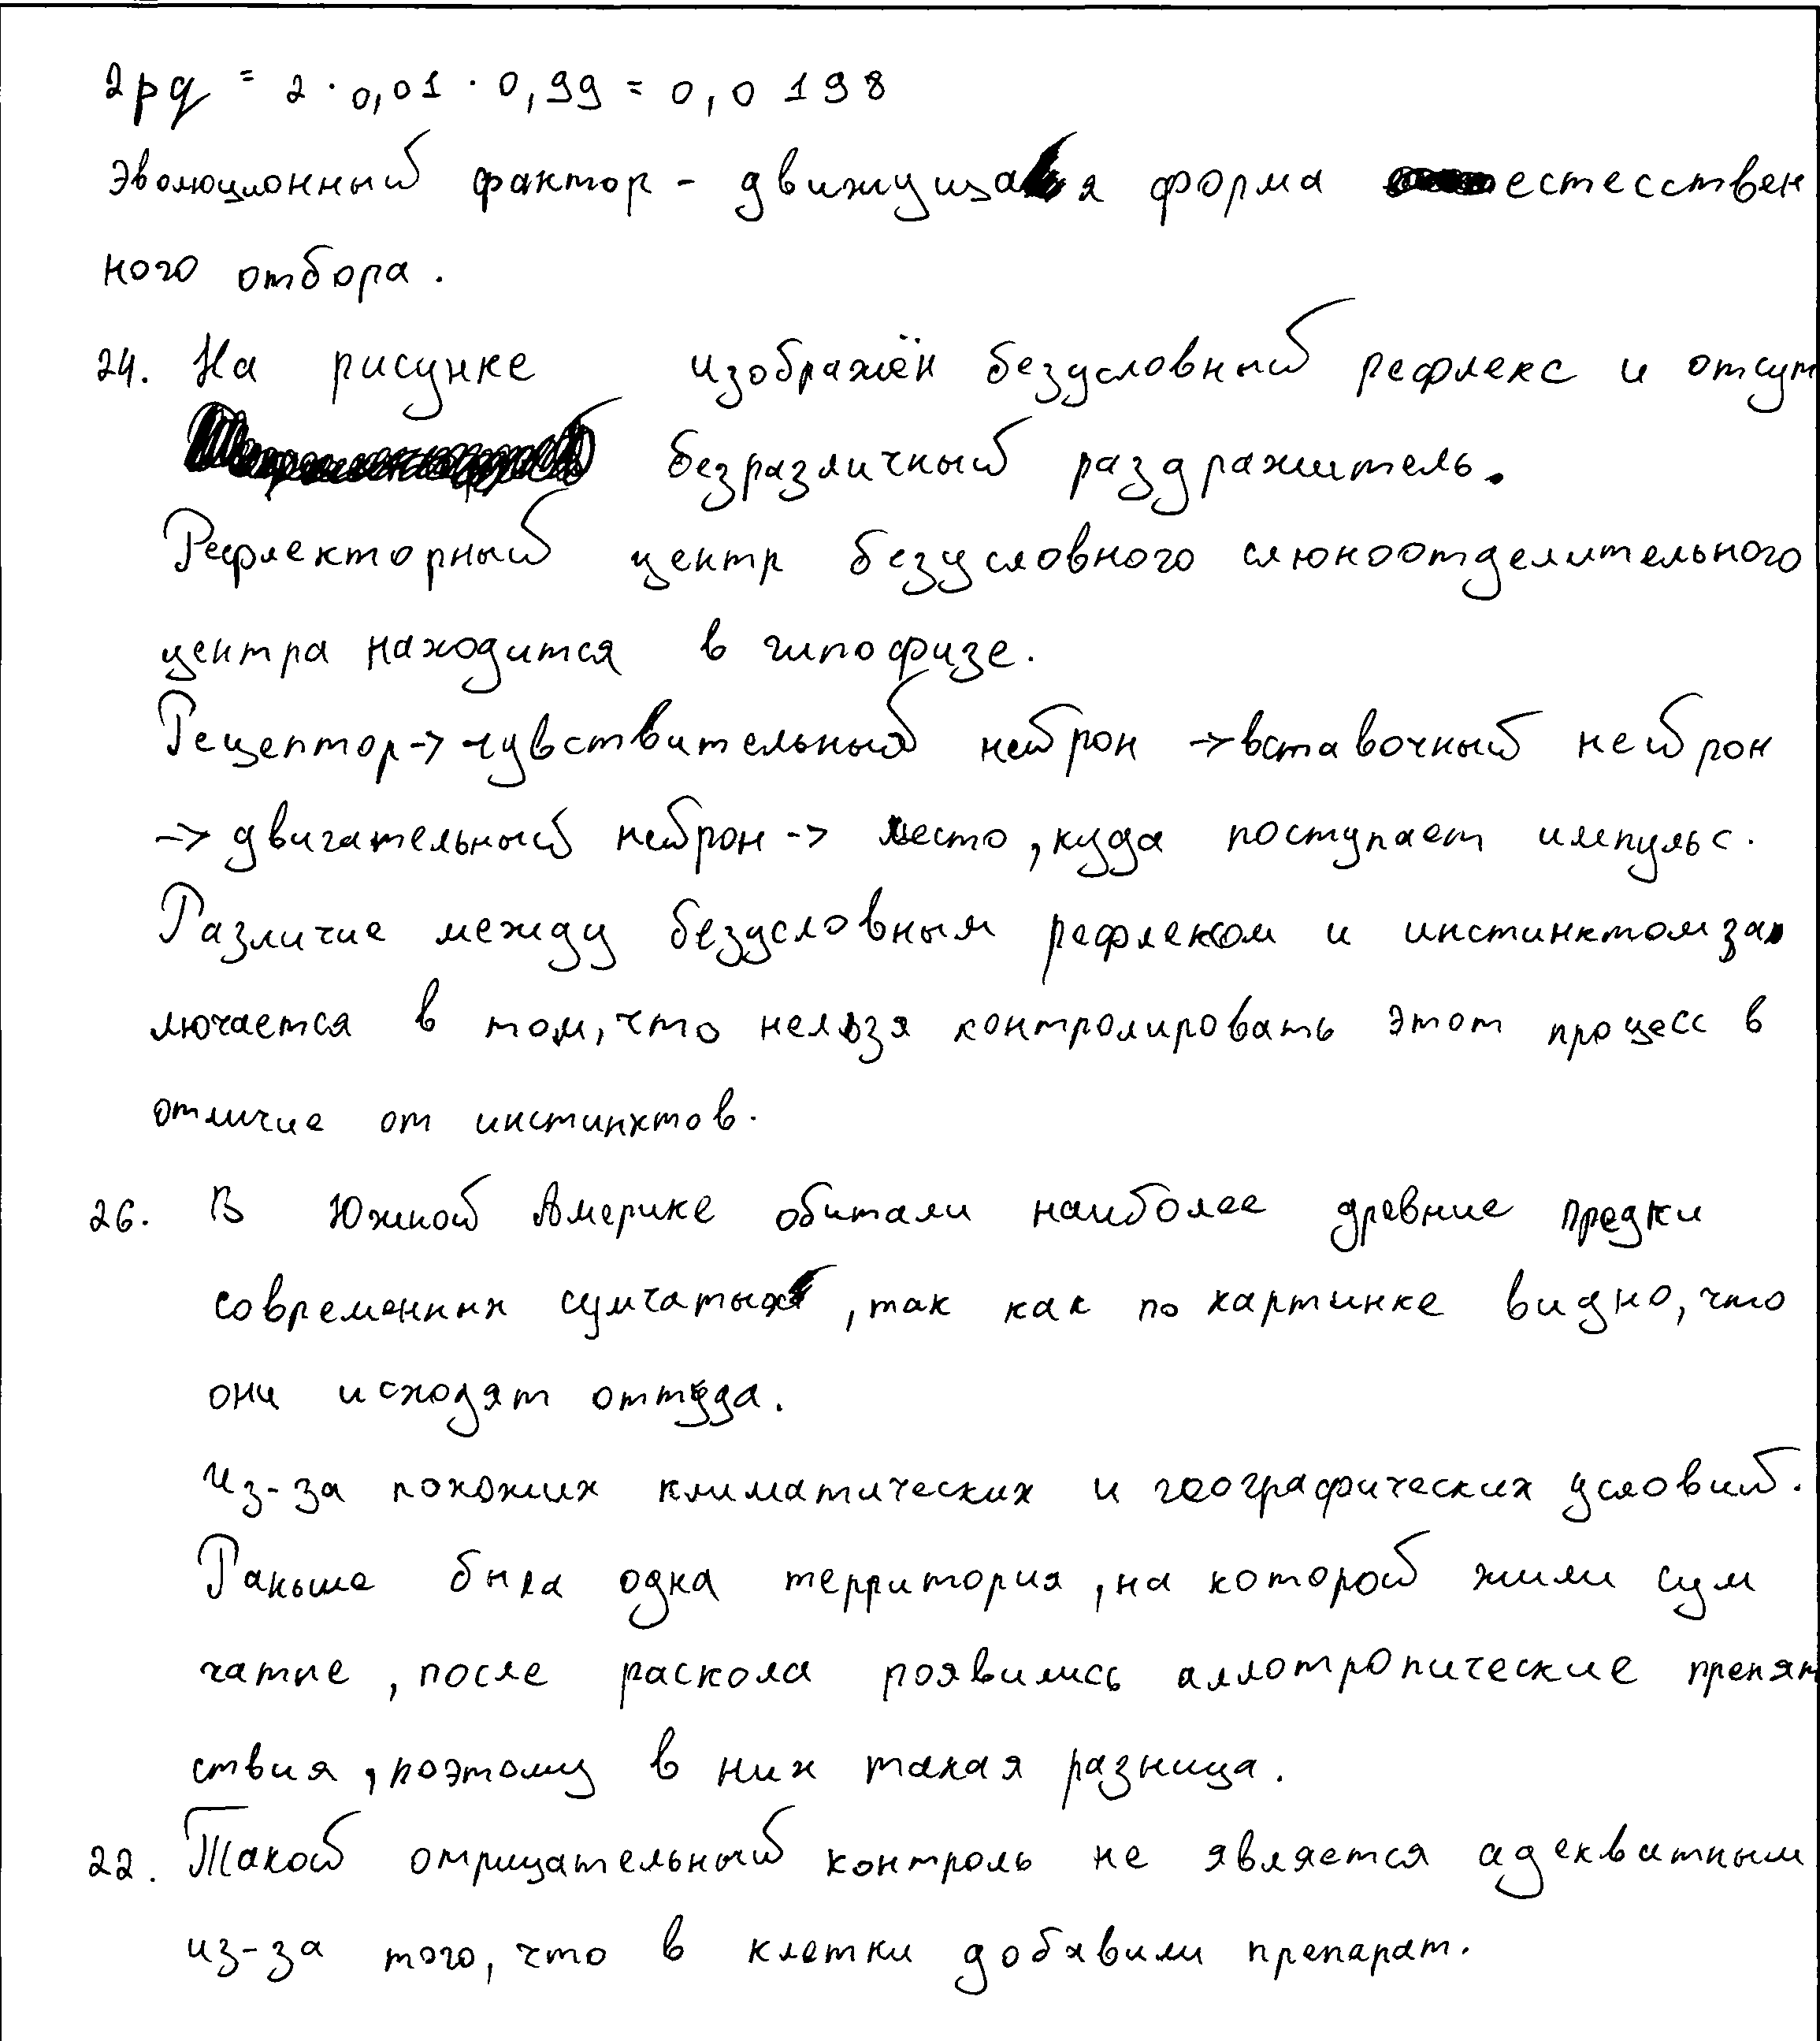 2pq = 2 · 0,01 · 0,99 = 0,0198
Эволюционный фактор - движущая форма естесствен
ного отбора.
24. На рисунке изображён безусловный рефлекс и отсут
безразличный раздражитель.
Рефлекторный центр безусловного слюноотделительного
центра находится в гипофизе.
Рецептор -> чувствительный нейрон -> вставочный нейрон
-> двигательный нейрон -> место, куда поступает импульс.
Различие между безусловным рефлексом и инстинктом зак
лючается в том, что нельзя контролировать этот процесс в
отличие от инстинктов.
26. В Южной Америке обитали наиболее древние предки
современных сумчатых, так как по картинке видно, что
они исходят оттуда.
Из-за похожих климатических и географических условий.
Раньше была одна территория, на которой жили сум
чатые, после раскола появились аллотропические препят
ствия, поэтому в них такая разница.
22. Такой отрицательный контроль не является адекватным
из-за того, что в клетки добавили препарат.